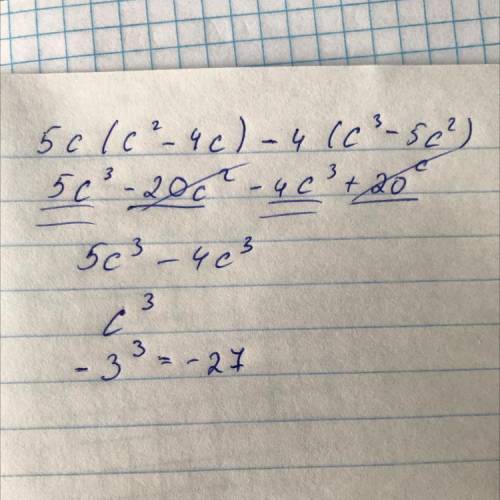 5c (c² - 4c) - 4 (c³ - 5c²)
5c³ - 20c² - 4c³ + 20c
5c³ - 4c³
c³
-3³ = -27